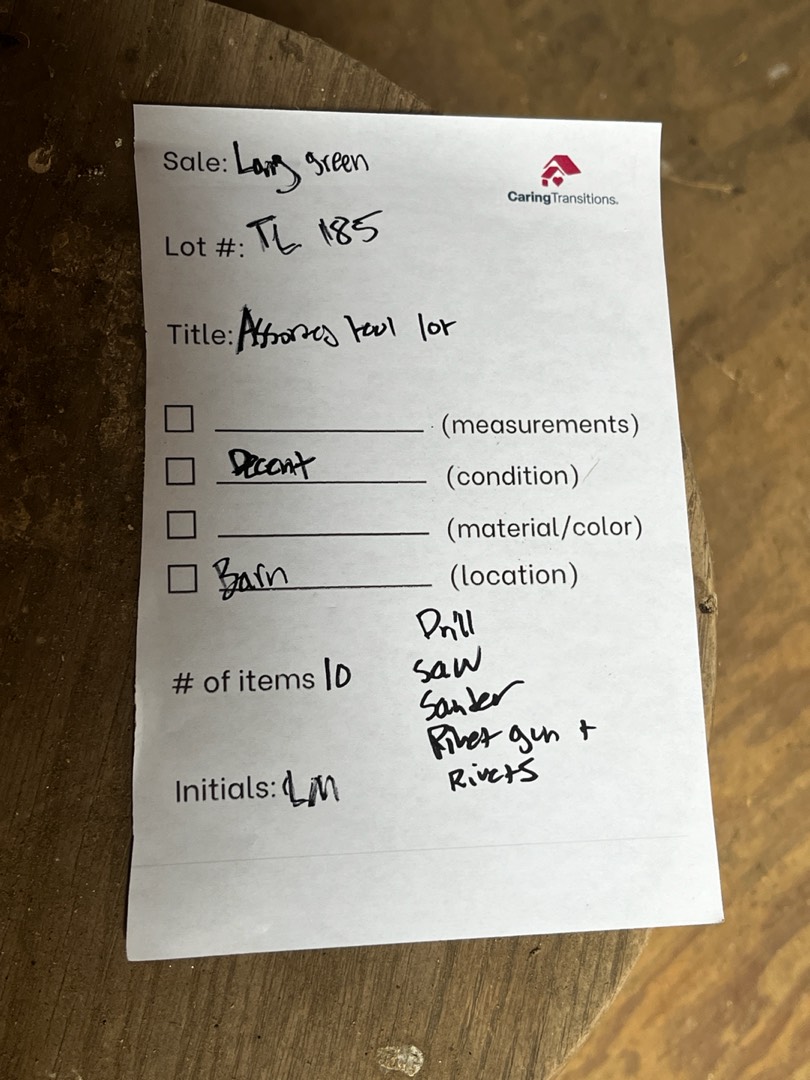 Sale: Long green
CaringTransitions.
Lot #: TL 185
Title: tool lot
(measurements)
Decent (condition)
(material/color)
Barn (location)
Drill
Saw
# of items 10
Sander
Rivet gun +
Rivets
Initials: LM